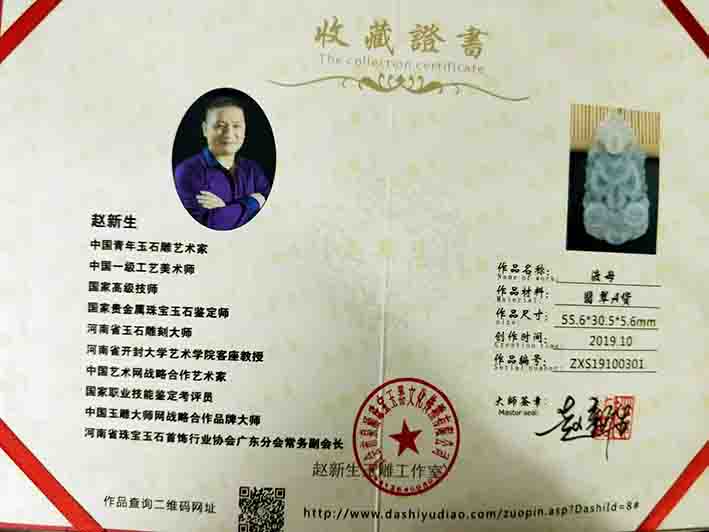 收藏證書
The collection certificate
赵新生
中国青年玉石雕艺术家
中国一级工艺美术师
国家高级技师
国家贵金属珠宝玉石鉴定师
河南省玉石雕刻大师
河南省开封大学艺术学院客座教授
中国艺术网战略合作艺术家
国家职业技能鉴定考评员
中国玉雕大师网战略合作品牌大师
河南省珠宝玉石首饰行业协会广东分会常务副会长
作品名称: 渔母
Name of work:
作品材料: 翡翠A货
Material:
作品尺寸: 55.6*30.5*5.6mm
size:
创作时间: 2019.10
Creation time:
作品编号: ZXS19100301
大师签章:
Master seal:
赵新生
赵新生玉雕工作室
作品查询二维码网址
http://www.dashiyudiao.com/zuopin.asp?DashiId=8#